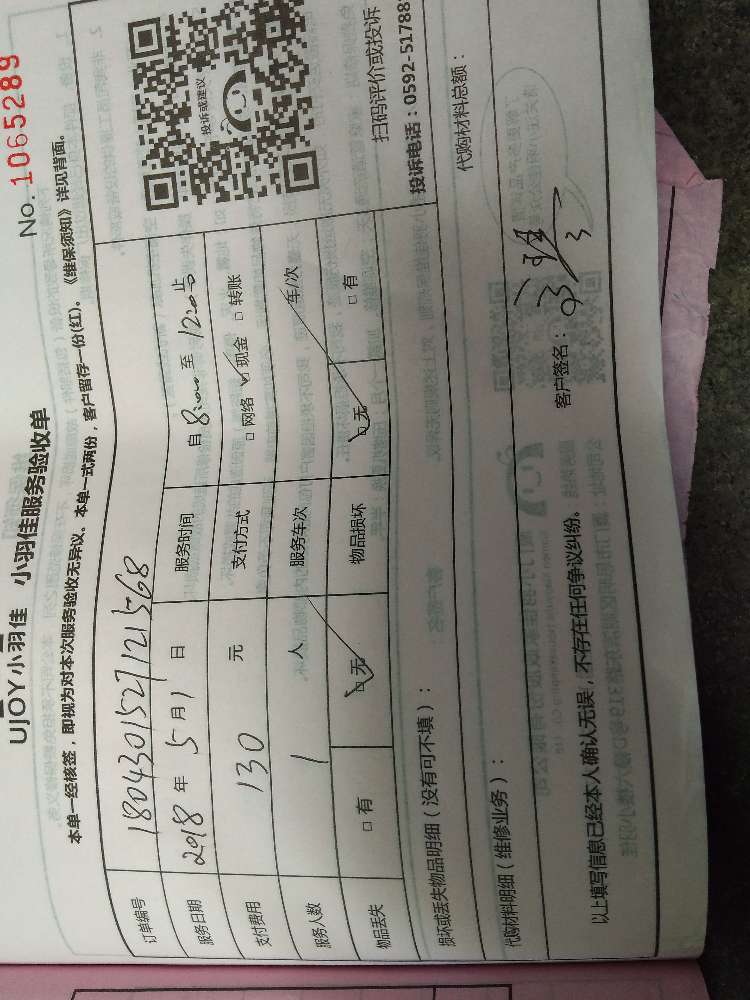 No. 1065289
UJOY小羽佳 小羽佳服务验收单
本单一经核签，即视为对本次服务验收无异议。本单一式两份，客户留存一份(红)。《维保须知》详见背面。
订单编号 1804301527121568
服务日期 2018 年 5 月 1 日 服务时间 自 8:00 至 12:00 止
支付费用 130 元 支付方式 □网络 □现金 □转账
服务人数 1 人 服务车次 车/次
物品丢失 □有 □无 物品损坏 □无 □有
投诉或建议
扫码评价或投诉
投诉电话：0592-51788
损坏或丢失物品明细（没有可不填）：
代购材料明细（维修业务）： 代购材料总额：
以上填写信息已经本人确认无误，不存在任何争议纠纷。 客户签名：